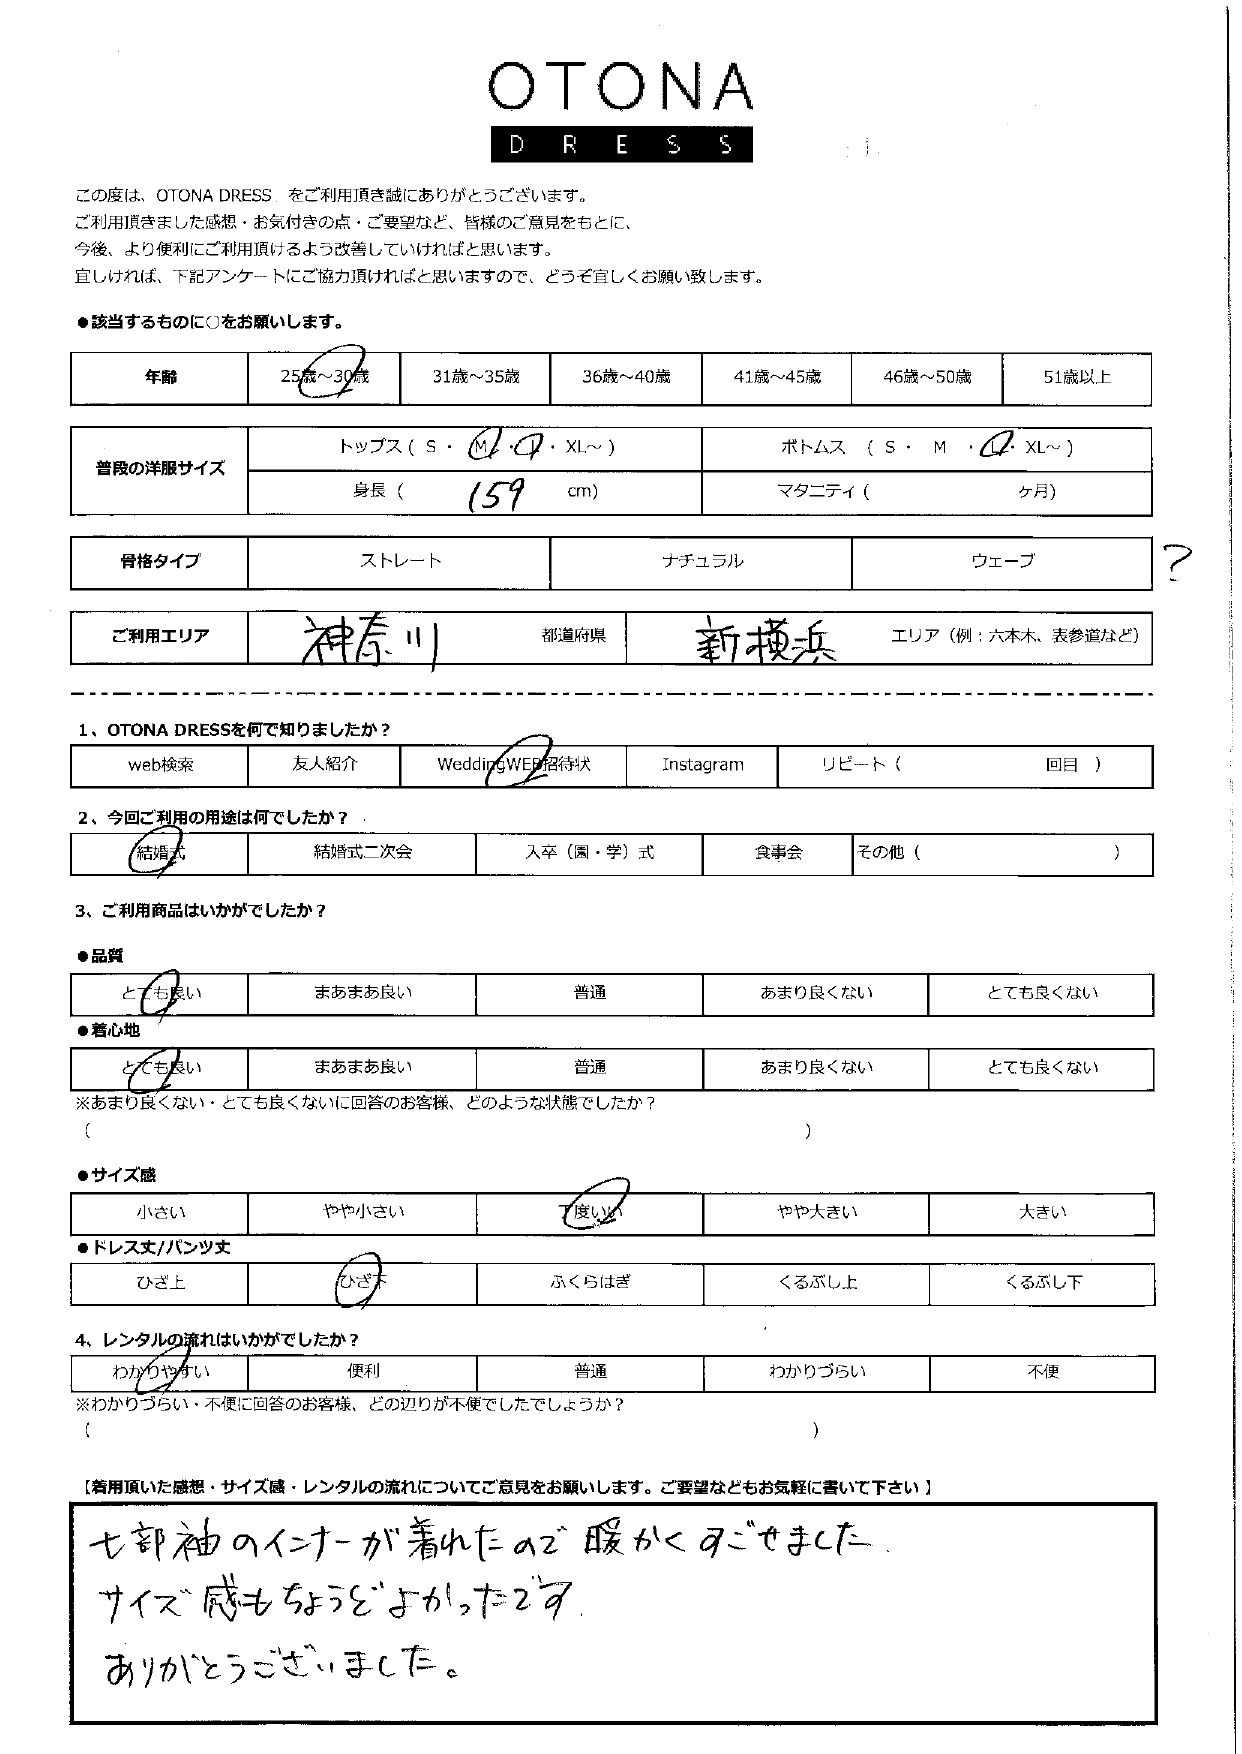 OTONA
DRESS
この度は、OTONA DRESS をご利用頂き誠にありがとうございます。
ご利用頂きました感想・お気付きの点・ご要望など、皆様のご意見をもとに、
今後、より便利にご利用頂けるよう改善していければと思います。
宜しければ、下記アンケートにご協力頂ければと思いますので、どうぞ宜しくお願い致します。
●該当するものに○をお願いします。
年齢 25歳～30歳 31歳～35歳 36歳～40歳 41歳～45歳 46歳～50歳 51歳以上
普段の洋服サイズ トップス ( S ・ M ・ L ・ XL～ ) ボトムス ( S ・ M ・ L ・ XL～ )
身長 ( 159 cm) マタニティ ( ヶ月)
骨格タイプ ストレート ナチュラル ウェーブ ?
ご利用エリア 神奈川 都道府県 新横浜 エリア（例：六本木、表参道など）
1、OTONA DRESSを何で知りましたか？
web検索 友人紹介 WeddingWEB招待状 Instagram リピート ( 回目 )
2、今回ご利用の用途は何でしたか？
結婚式 結婚式二次会 入卒（園・学）式 食事会 その他 ( )
3、ご利用商品はいかがでしたか？
●品質
とても良い まあまあ良い 普通 あまり良くない とても良くない
●着心地
とても良い まあまあ良い 普通 あまり良くない とても良くない
※あまり良くない・とても良くないに回答のお客様、どのような状態でしたか？
( )
●サイズ感
小さい やや小さい 丁度いい やや大きい 大きい
●ドレス丈/パンツ丈
ひざ上 ひざ下 ふくらはぎ くるぶし上 くるぶし下
4、レンタルの流れはいかがでしたか？
わかりやすい 便利 普通 わかりづらい 不便
※わかりづらい・不便に回答のお客様、どの辺りが不便でしたでしょうか？
( )
【着用頂いた感想・サイズ感・レンタルの流れについてご意見をお願いします。ご要望などもお気軽に書いて下さい】
七部袖のインナーが着れたので暖かくすごせました.
サイズ感もちょうどよかったです.
ありがとうございました。